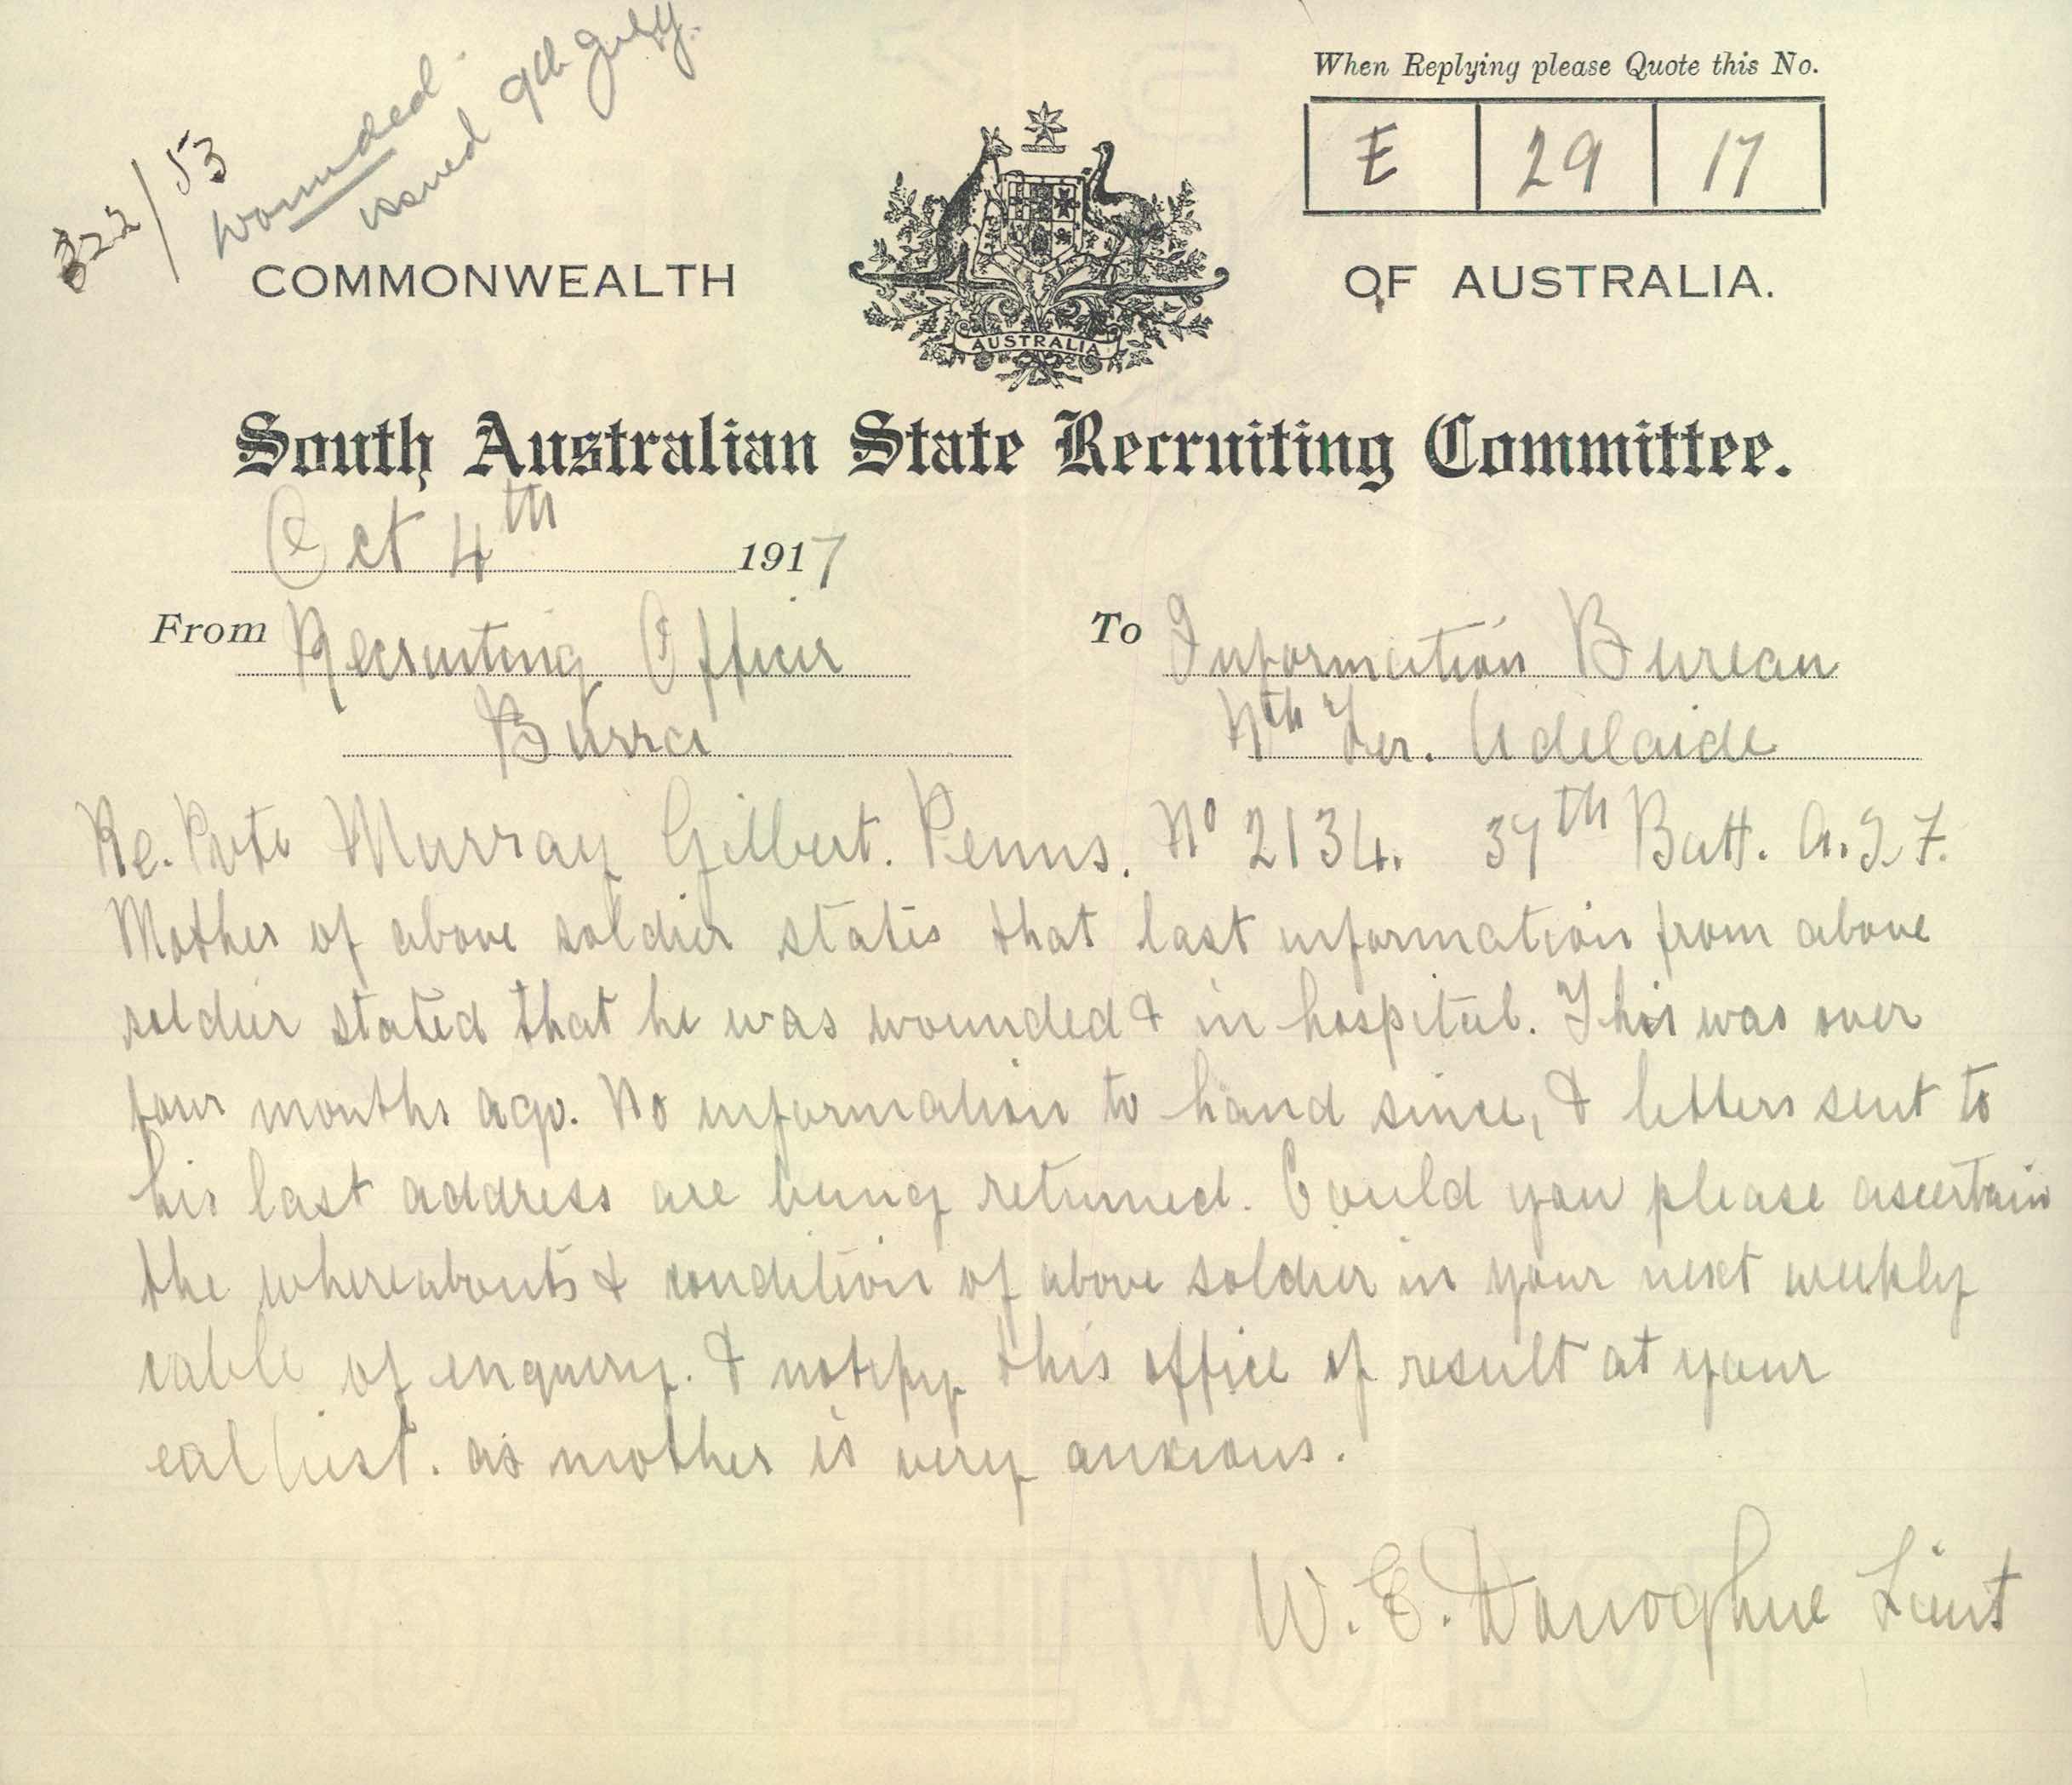 322/53
wounded.
issued 9th July.
When Replying please Quote this No.
E 29 17
COMMONWEALTH OF AUSTRALIA.
AUSTRALIA
South Australian State Recruiting Committee.
Oct 4th 1917
From Recruiting Officer To Information Bureau
Burra Nth Ter. Adelaide
Re. Pvte Murray Gilbert. Penns. No 2134. 37th Batt. A.I.F.
Mother of above soldier states that last information from above
soldier stated that he was wounded & in hospital. This was over
four months ago. No information to hand since, & letters sent to
his last address are being returned. Could you please ascertain
the whereabouts & condition of above soldier in your next weekly
cable of enquiry. & notify this office of result at your
earliest. as mother is very anxious.
W. E. Donoghue Lieut